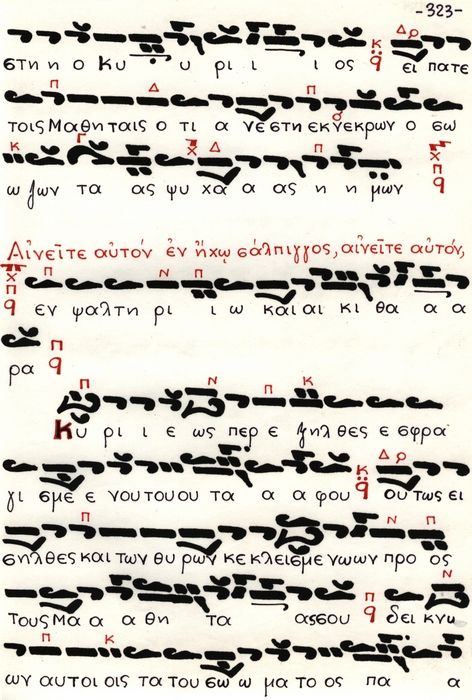 -323-
στη η ο Κυ υ ρι ι ι ος ει πατε
τοις Μαθηταις ο τι α νε στη εκ νεκρων ο σω
ω ζων τα ας ψυ χα α ας η η μων
Αἰνεῖτε αὐτόν ἐν ἤχῳ σάλπιγγος, αἰνεῖτε αὐτόν,
εν ψαλτη ρι ι ω και αι κι θα α α
ρα
Κυ ρι ι ε ως περ ε ξηλ θες ε σφρα
γι σμε ε νου του ου τα α α φου ου τως ει
σηλθες και των θυ ρων κε κλεισμε νω ων προ ος
τους Μα α α θη τα α ας σου δει κνυ
ων αυτοι οις τα του σω ω μα το ος πα α